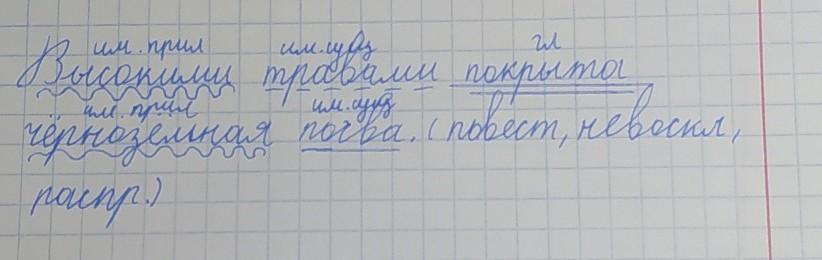 им. прил им. сущ гл
Высокими травами покрыта
им. прил им. сущ
чёрноземная почва. (повест, невоскл,
распр.)